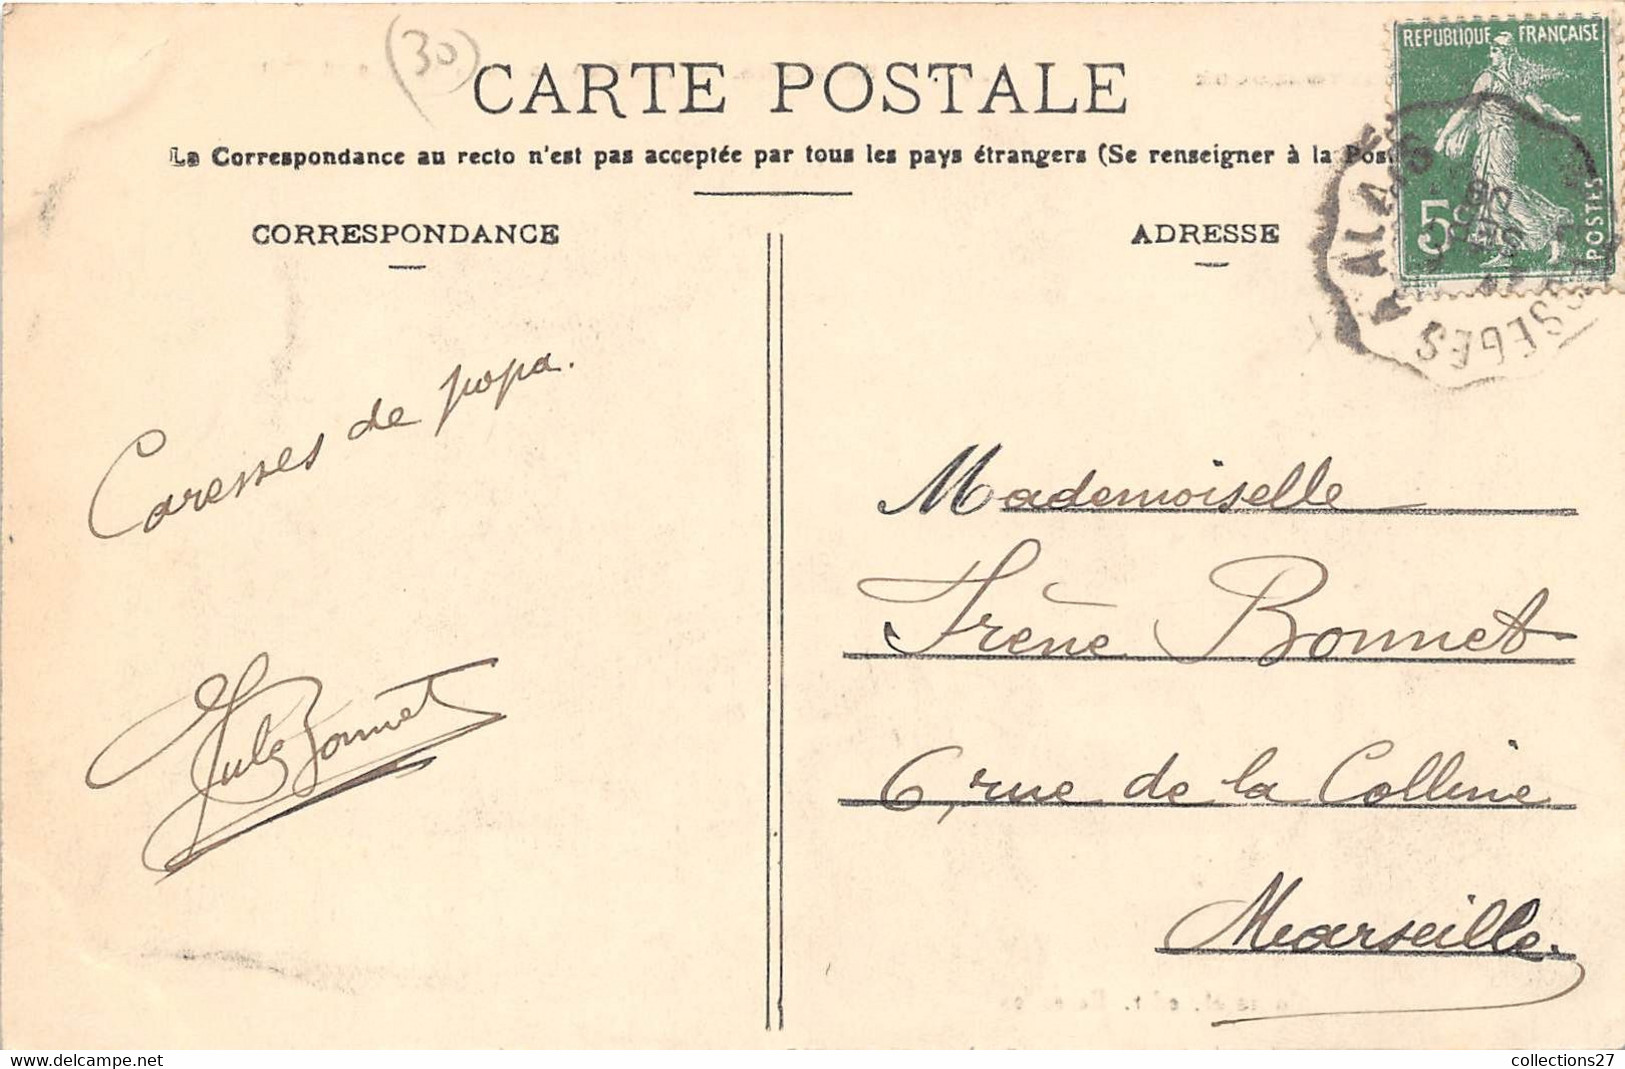 (30)
CARTE POSTALE
La Correspondance au recto n'est pas acceptée par tous les pays étrangers (Se renseigner à la Post
CORRESPONDANCE
ADRESSE
REPUBLIQUE FRANÇAISE
5c
POSTES
A ALAIS
SSEGES
Caresses de papa.
Jules Bonnet
Mademoiselle
Irène Bonnet
6, rue de la Colline
Marseille.
collections27